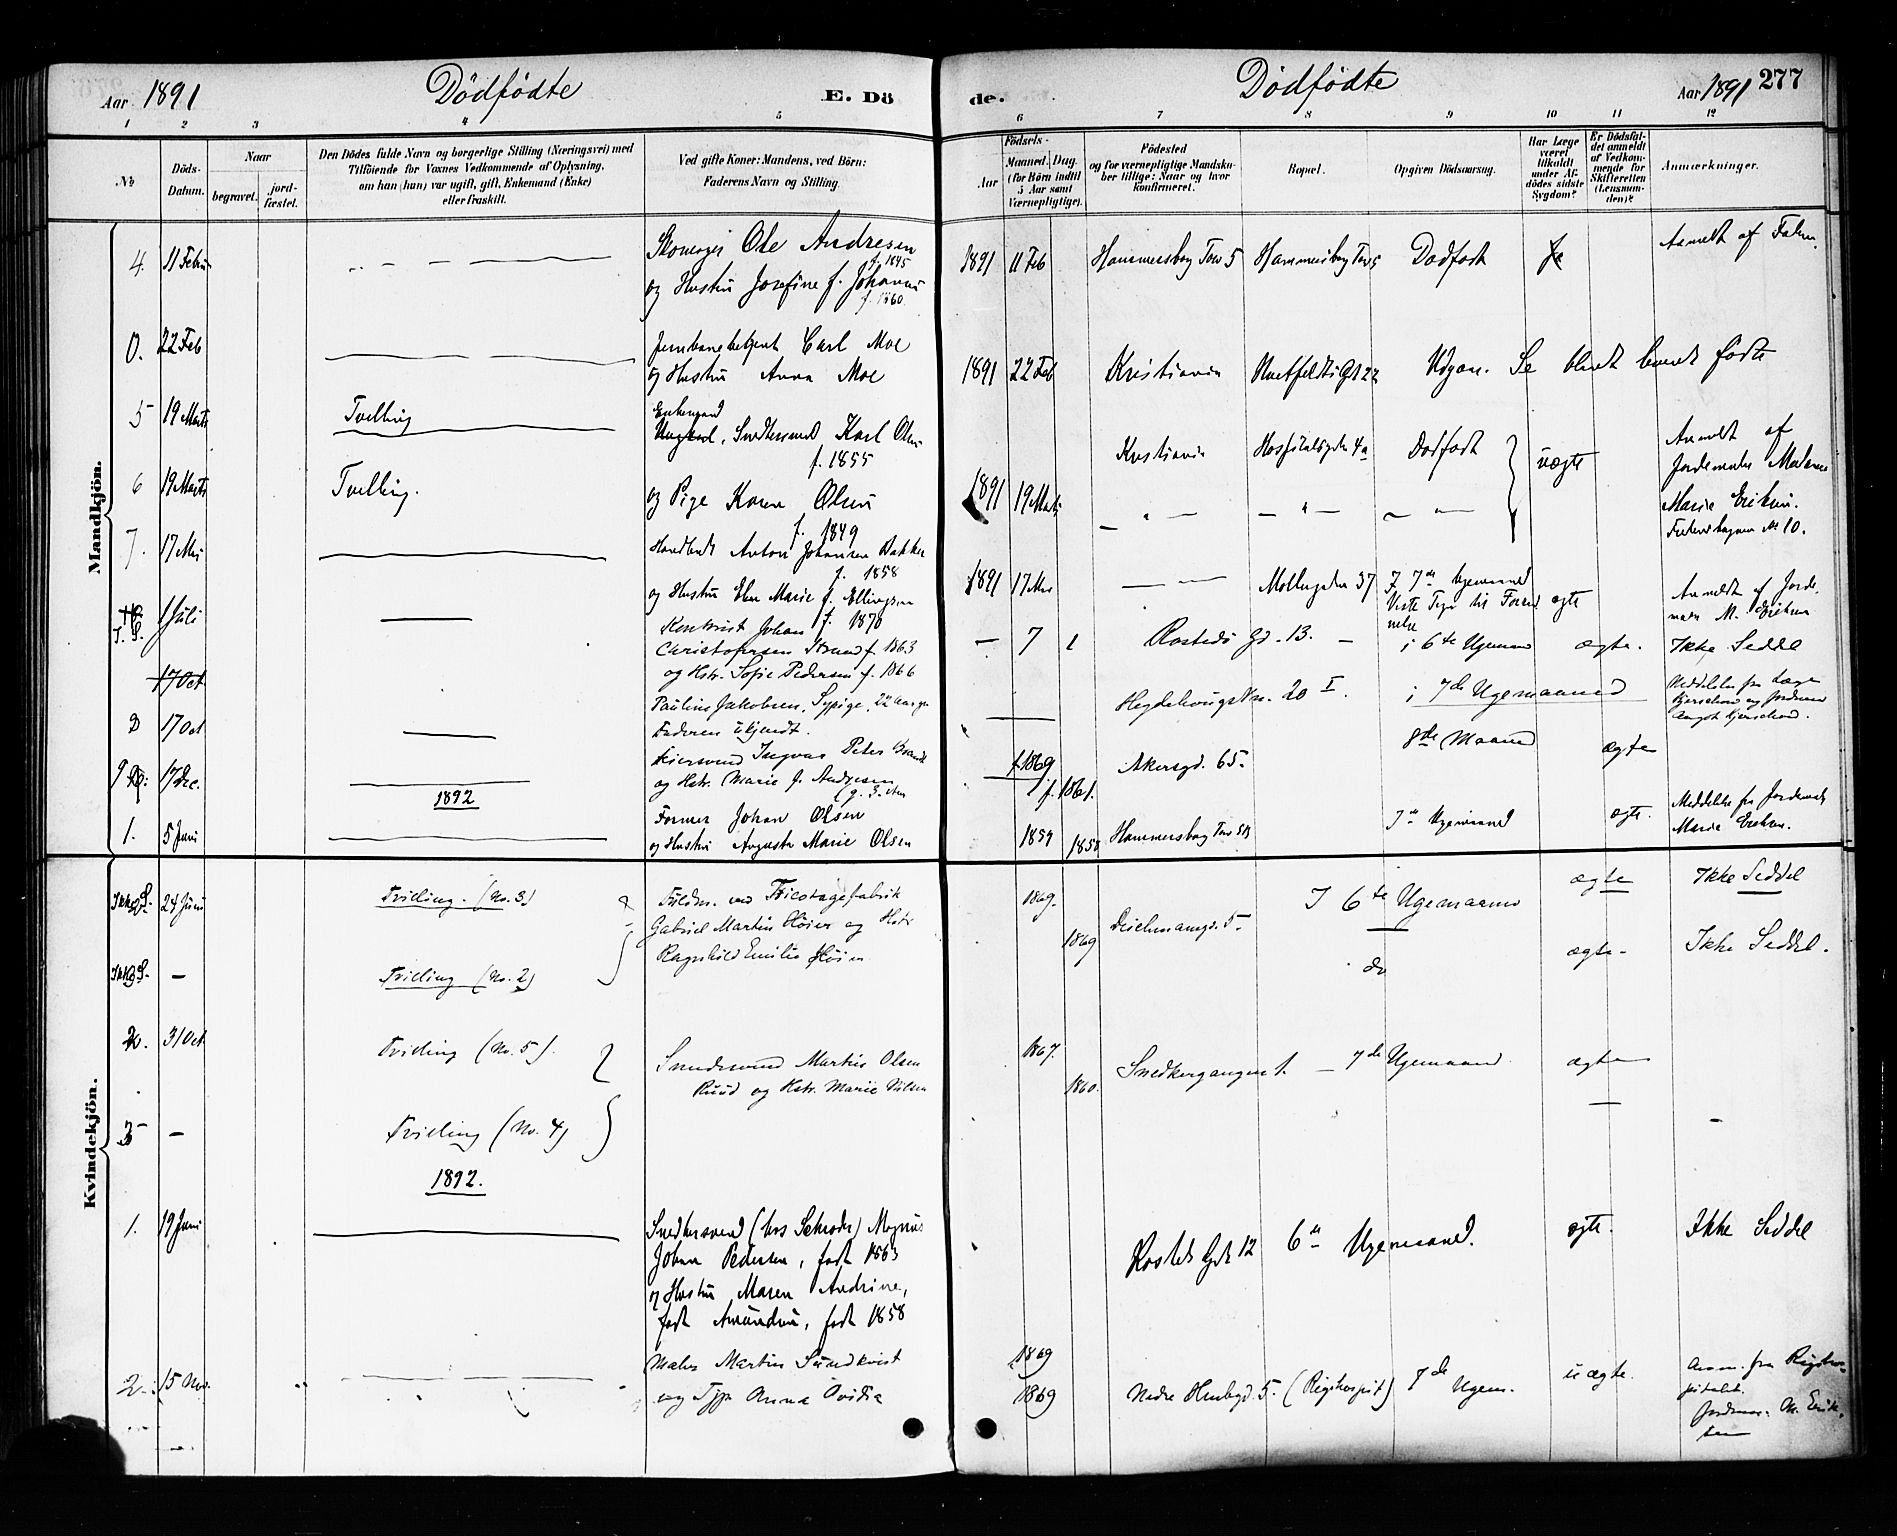 Aar 1891 Dödfödte E. Dö
de. Dödfödte Aar 1891 277
1 2 3 4 5
6 7 8 9 10 11 12
No
Döds-Datum.
Naar
begravet.
jord-fæstet.
Den Dödes fulde Navn og borgerlige Stilling (Næringsvei) med
Tilföiende for Voxnes Vedkommende af Oplysning,
om han (hun) var ugift, gift, Enkemand (Enke)
eller fraskilt.
Ved gifte Koner: Mandens, ved Börn:
Faderens Navn og Stilling.
Födsels-
Aar
Maaned. Dag.
(for Börn indtil
5 Aar samt
Værnepligtige).
Födested
og for værnepligtige Mandsku-
ber tillige: Naar og hvor
konfirmeret.
Bopæl.
Opgiven Dödsaarsag.
Har Læge
været
tilkaldt
under Af-
dödes sidste
Sygdom?
Er Dödsfal-
det anmeldt
af Vedkom-
mende for
Skifteretten
(Lensman-
den)?
Anmærkninger.
Mandkjön.
4. 11 Febr
Ole Andresen
f. 1845
og Hustru Josefine f. Johannes
f. 1860.
1891 11 Feb Hammersborg Torv 5 Hammersborg Torv 5 Dødfødt Ja
Anmeldt af Faderen
0. 22 Feb
Jernbanebetjent Carl Moe
og Hustru Anna Moe
1891 22 Feb Kristiania Udgaar. Se blandt levende fødte
5 19 Marts Tvilling
Enkemand
Ungkarl, Snedkersvend Karl Olsen
f. 1855
Kristiania Hospitalsgaden 4a Dødfødt uægte
Anmeldt af
Jordemoder Madame
Marie Eriksen.
No 10.
6 19 Marts Tvilling.
og Pige Karen Olsen
f. 1849
1891 19 Marts
7. 17 Mai
Anton Johansen Bakken
f. 1858
og Hustru Marie f. Ellingsen
f. 1870
1891 17 Mai Møllergaden 37 I 7de Ugemaaned
ægte
Anmeldt af Jorde
moder M. Eriksen
I. S. 1 Juli
Kontorist Johan
Christofersen Strand f. 1863
og Hstr. Sofie Pedersen f. 1866
7 1 Rosteds Gd. 13. i 6te Ugemaaned ægte. Ikke Seddel
17 Oct
8 17 Oct
Pauline Jakobsen, Sypige, 22 Aar gl
Faderen ukjendt.
Hegdehaugsvn. 20 I. i 7de Ugemaaned
Meddelelse fra Læge
Kjerschow og Jordmor
Aagot Kjerschow.
9 17 Dec.
Ingvar Peter
og Hstr. Marie f. Andresen
f 1869
f. 1861.
Akersgd. 65. 8de Maaned ægte
1892
1. 5 Juni
Former Johan Olsen
og Hustru Augusta Marie Olsen
1859 1858 Hammersborg Torv 5B 7de Ugemaaned ægte.
Meddelelse fra Jordemoder
Marie Eriksen.
Kvindekjön.
Ikke S. 24 Juni Trilling. (No. 3)
ved Tricotagefabrik
Gabriel Martin Höier og Hstr
Ragnhild Emilie Höier
1869. 1869 Deichmansgd. 5 I 6te Ugemaaned ægte Ikke Seddel
Ikke S. — Trilling (No. 2)
do ægte Ikke Seddel.
2. 31 Oct Tvilling (No. 5).
Smedesvend Martin Olsen
Ruud og Hstr. Marie Nilsen
1867. 1860. Snedkergangen 1. — 7de Ugemaaned ægte
3 — Tvilling (No. 4)
1892.
1. 19 Juni
Snedkersvend (hos Schrøder) Magnus
Johan Pedersen, født 1863
og Hustru Maren Andrine,
født Amundsen, født 1858
Rosteds Gd. 12 6te Ugemaaned. ægte. Ikke Seddel
2. 15 Nov.
Maler Martin Sundkvist
og Anna Ovidia
1869
1869 Nedre 5. (Rigshospit) 7de Ugem. uægte.
Anm. fra Rigshos-
pitalet.
Jordmor M. Erik-
sen